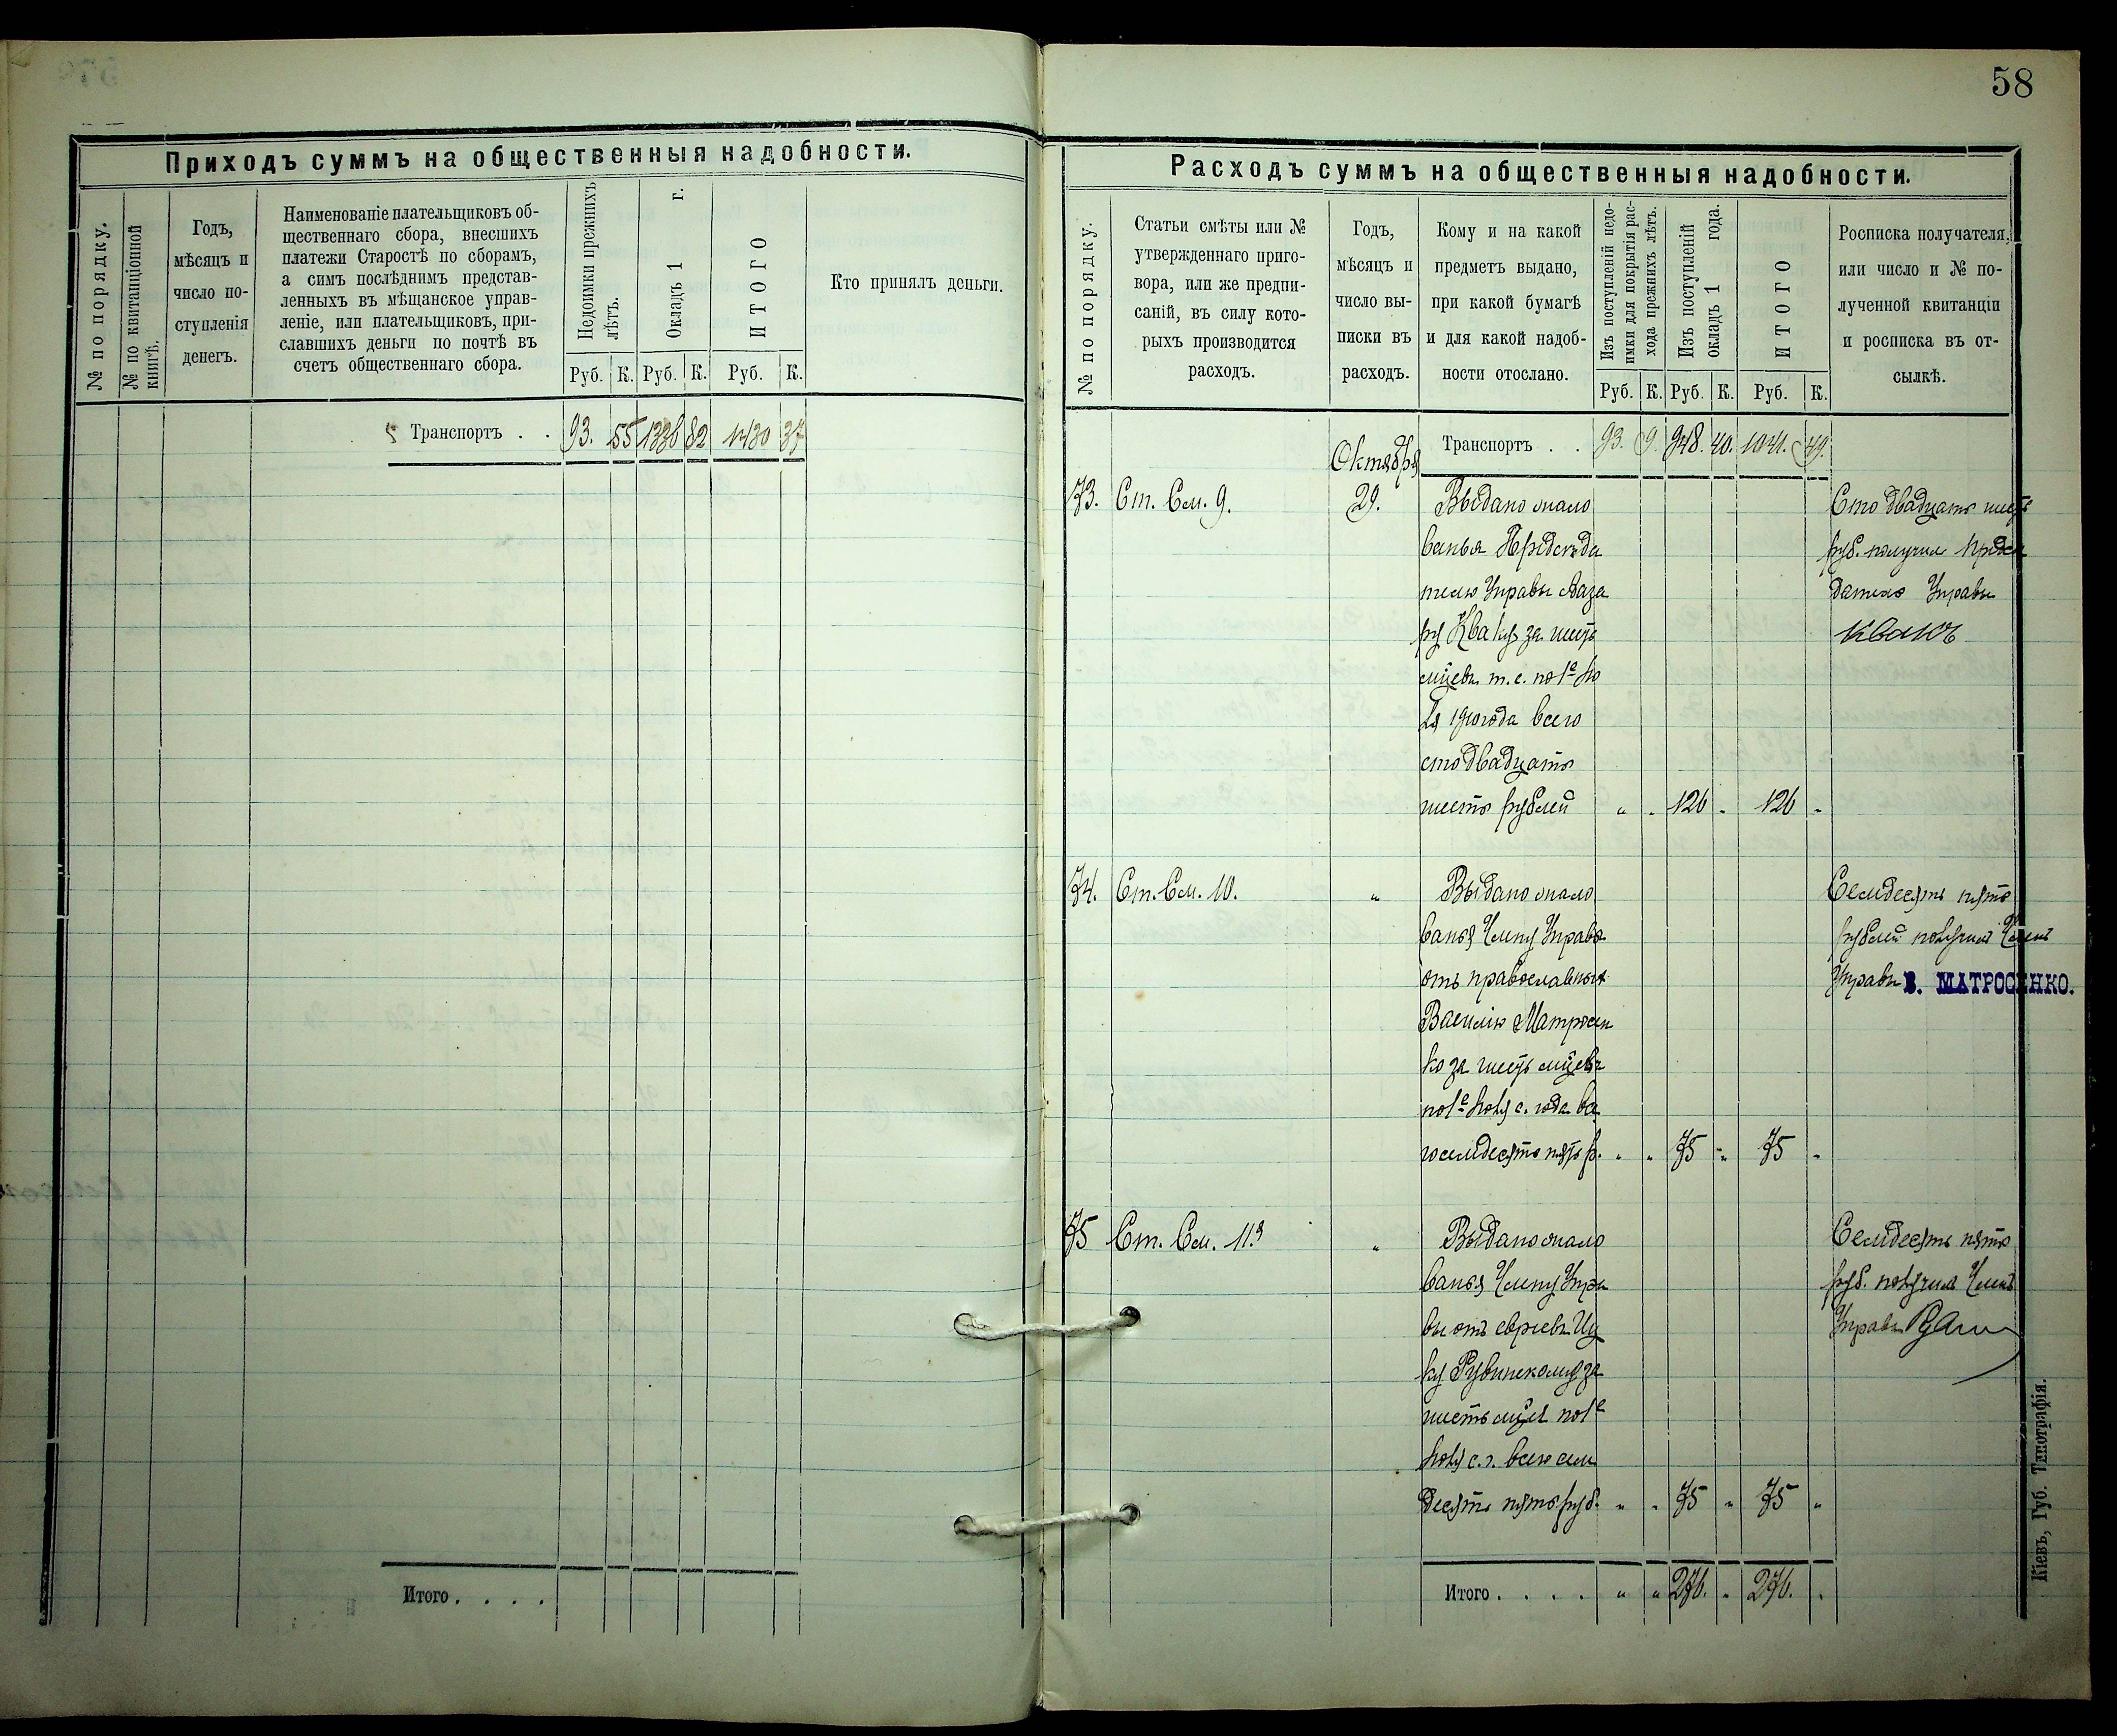 58
Приходъ суммъ на общественныя надобности.
№ по порядку.
№ по квитанціонной
книгѣ.
Годъ,
мѣсяцъ и
число по-
ступленія
денегъ.
Наименованіе плательщиковъ об-
щественнаго сбора, внесшихъ
платежи Старостѣ по сборамъ,
а симъ послѣднимъ представ-
ленныхъ въ мѣщанское управ-
леніе, или плательщиковъ, при-
славшихъ деньги по почтѣ въ
счетъ общественнаго сбора.
Недоимки прежнихъ
лѣтъ.
Окладъ 1 г.
ИТОГО
Кто принялъ деньги.
Руб. К. Руб. К. Руб. К.
Транспортъ . . 93. 55 1336 82 1430 37
Итого . . . .
Расходъ суммъ на общественныя надобности.
№ по порядку.
Статьи смѣты или №
утвержденнаго приго-
вора, или же предпи-
саній, въ силу кото-
рыхъ производится
расходъ.
Годъ,
мѣсяцъ и
число вы-
писки въ
расходъ.
Кому и на какой
предметъ выдано,
при какой бумагѣ
и для какой надоб-
ности отослано.
Изъ поступленій недо-
имки для покрытія рас-
хода прежнихъ лѣтъ.
Изъ поступленій
окладъ 1 года.
ИТОГО
Росписка получателя,
или число и № по-
лученной квитанціи
и росписка въ от-
сылкѣ.
Руб. К. Руб. К. Руб. К.
Транспортъ . . 93. 9. 948. 40. 1041. 49.
Октября
73. Ст. См. 9. 29. Выдано жало
ванья Предсѣда
телю Управы Лаза
ру Кваку за шесть
мѣсцевъ т. е. по 1е Но
бя 1910 года всего
сто двадцать
шесть рублей " " 126 " 126 "
Сто двадцать шесть
руб. получилъ Предсѣ
датель Управы
Квакъ
74. Ст. См. 10. " Выдано жало
ванья Члену Управы
отъ православныхъ
Василію Матросен
ко за шесть мѣсцевъ
по 1е Нояб с. года все
го семдесять пять р. " " 75 " 75 "
Семдесять пять
рублей получилъ Членъ
Управы В. МАТРОСЕНКО.
75 Ст. См. 11. " Выдано жало
ванья Члену Упра
вы отъ евреевъ Иц
ку Рубинскому за
шесть мѣсц по 1е
Нояб с. г. всего сем
десять пять руб. " " 75 " 75 "
Семдесять пять
руб. получилъ Членъ
Управы
Итого . . . . " " 276. " 276. "
Кіевъ, Губ. Типографія.